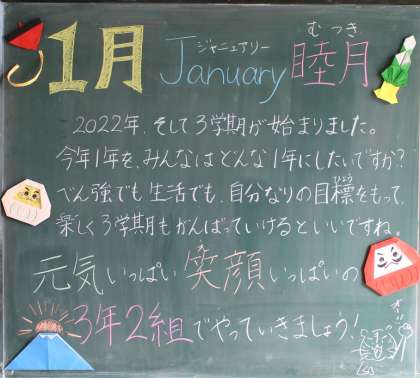 1月 January ジャニュアリー 睦月 むつき
2022年、そして3学期が始まりました。
今年1年を、みんなはどんな1年にしたいですか?
べん強でも生活でも、自分なりの目標をもって、
もくひょう
楽しく3学期もがんばっていけるといいですね。
元気いっぱい笑顔いっぱいの
えがお
3年2組でやっていきましょう!
オー!!